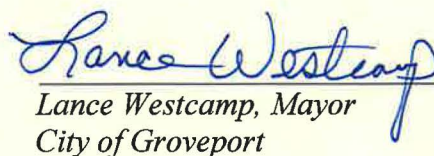 Lance Westcamp
Lance Westcamp, Mayor
City of Groveport